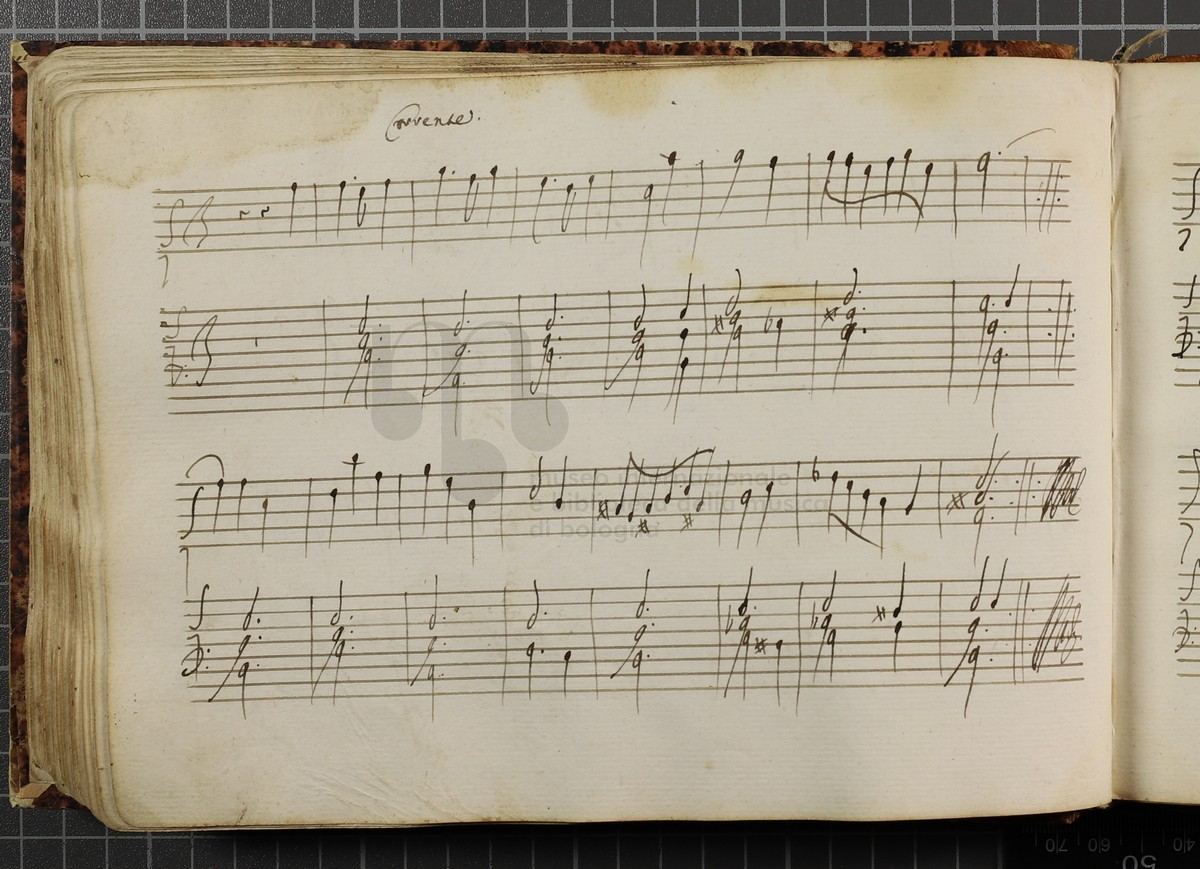 Corrente.
museo internazionale
e biblioteca della musica
di bologna
70
60
50
40